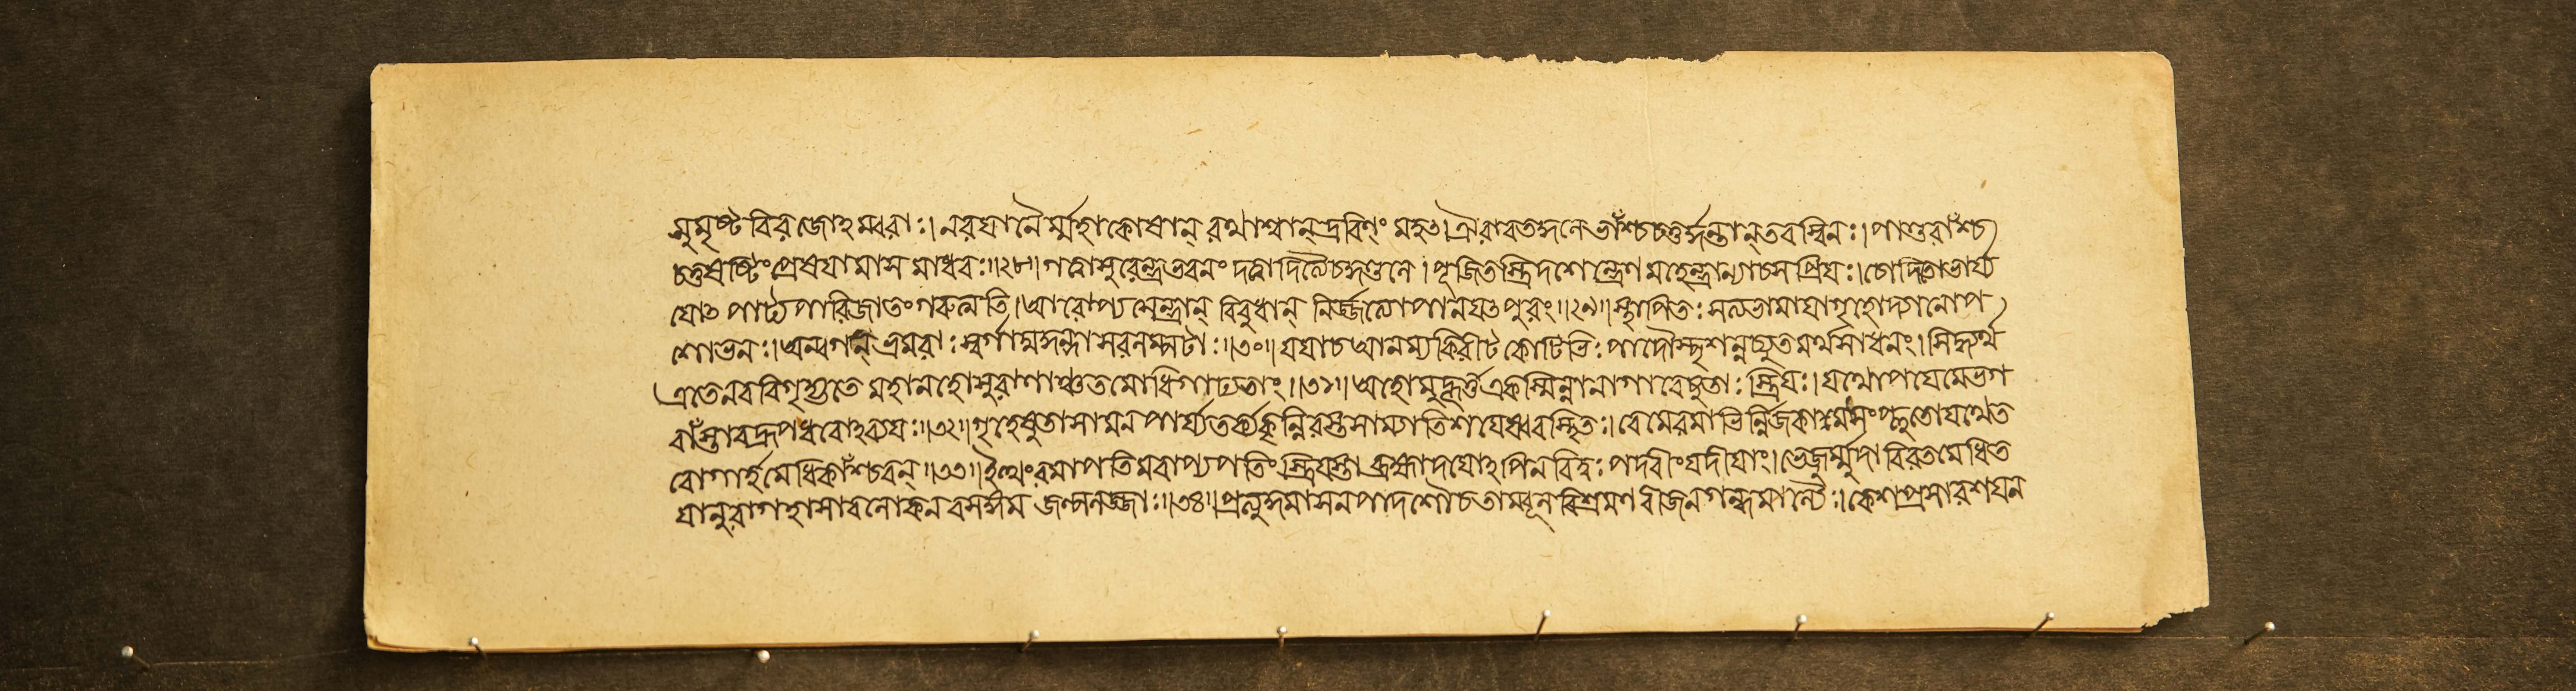 সুমৃষ্ট বিরজোঽম্বরাঃ। নরযানৈর্ম্মহাকোষান্ রথাশ্বান্দ্রবিণং মহৎ। ঐরাবতকুলেভাঁশ্চ চতুর্দ্দন্তান্ তরস্বিনঃ। পাণ্ডুরাঁশ্চ
চতুঃষষ্টিং প্রেষযামাস মাধবঃ॥২৮॥ গত্বাসুরেন্দ্রভবনং দত্বাদিত্যৈচকুণ্ডলে। পূজিতস্ত্রিদশেন্দ্রেণ মহেন্দ্রান্যাচসপ্রিযঃ। চোদিতোভার্য্য
যোৎপাট্যপারিজাতংগরুত্মতি। আরোপ্যসেন্দ্রান্ বিবুধান্ নির্জ্জিত্যোপানযৎপুরং॥২৯॥ স্থাপিতঃ সত্যভামাযাগৃহোদ্যানোপ
শোভনঃ। অন্বগান্ ভ্রমরাঃ স্বর্গাত্তদ্গন্ধাসবলম্পটাঃ॥৩০॥ যযাচআনম্যকিরীটকোটিভিঃ পাদৌস্পৃশন্নচ্যুতমর্থসাধনং। সিদ্ধার্থ
এতেনববিগৃহ্যতে মহানহোসুরাণাঞ্চতমোধিগাঢ্যতাং॥৩১॥ অথোমুহূর্ত্তএকস্মিন্নানাগারেষুতাঃ স্ত্রিযঃ। যথোপযেমেভগ
বাঁস্তাবদ্রূপধরোঽব্যযঃ॥৩২॥ গৃহেষুতাসামনপায্যতর্ক্যকৃন্নিরস্তসাম্যাতিশযেষ্ববস্থিতঃ। রেমেরমাভির্নিজকামসংপ্লুতোযথেত
রোগার্হমেধিকাঁশ্চরন্॥৩৩॥ ইত্থংরমাপতিমবাপ্যপতিংস্ত্রিযস্তা ব্রহ্মাদযোঽপিনবিদুঃ পদবীংযদীযাং। ভেজুর্ম্মুদাবিরতমেধিত
যানুরাগহাসাবলোকনবসঙ্গম জল্পলজ্জাঃ॥৩৪॥ প্রত্যুদ্গমাসনপাদশৌচতাম্বূলবিশ্রমণবীজনগন্ধমাল্যৈঃ। কেশপ্রসারশযন